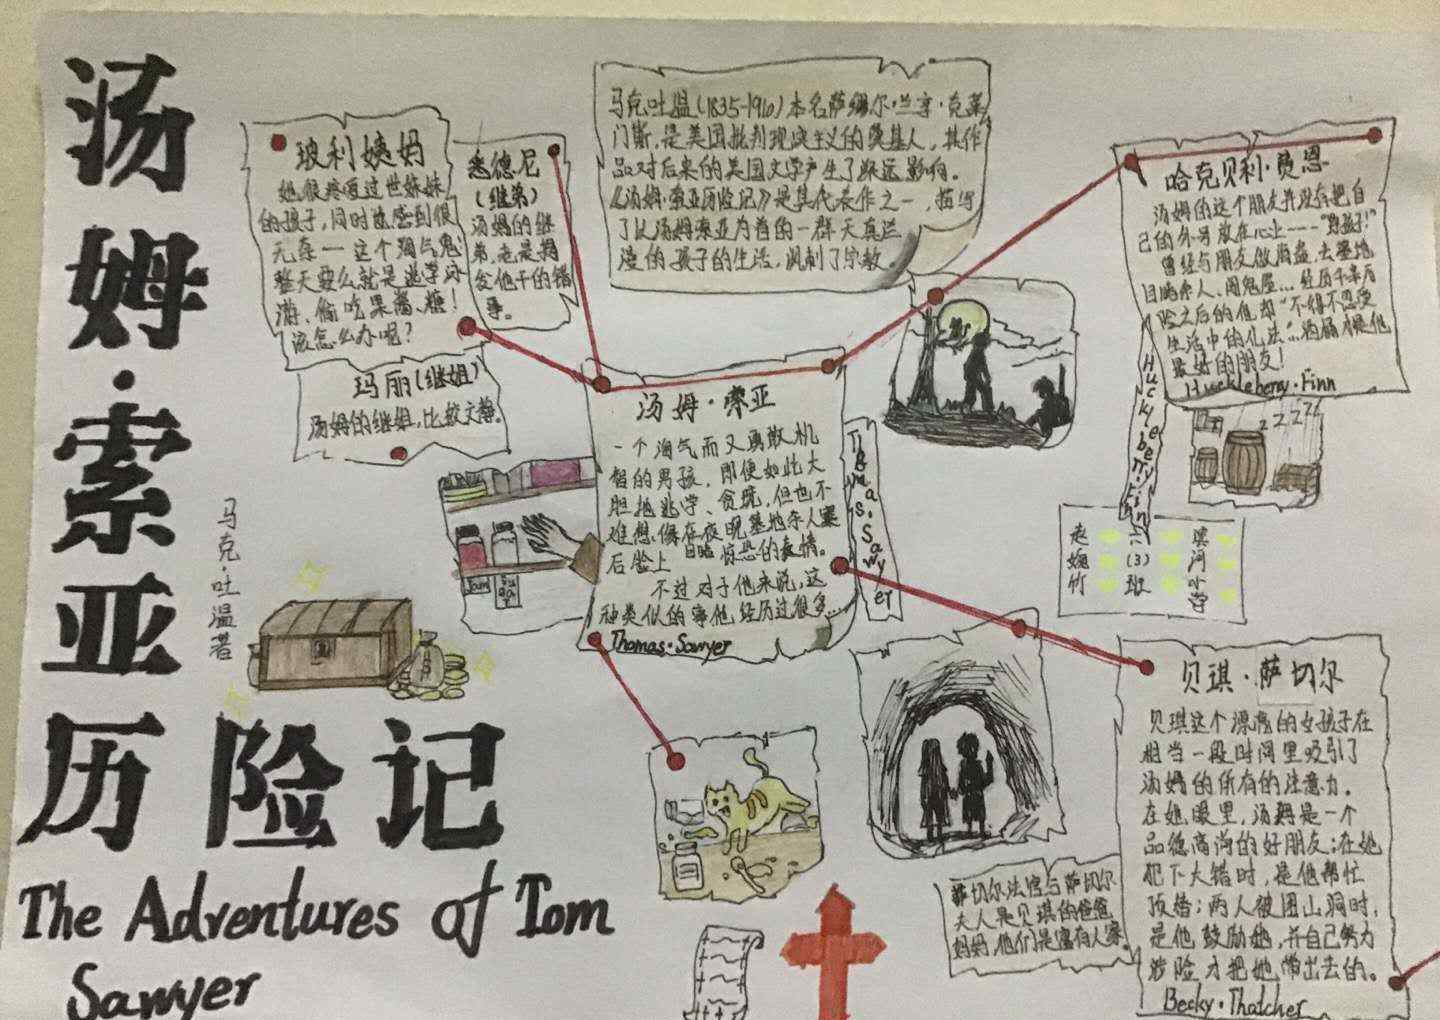 汤姆·索亚
历险记
The Adventures of Tom
Sawyer
马克·吐温著
玻利姨妈
她很疼爱过世妹妹
的孩子，同时也感到很
无奈——这个淘气鬼
整天要么就是逃学闲
游、偷吃果酱、糖！
该怎么办呢？
悉德尼
（继弟）
汤姆的继
弟，老是揭
发他干的错
事。
玛丽（继姐）
汤姆的继姐，比较文静。
马克·吐温（1835-1910）本名萨缪尔·兰亨·克莱
门斯，是美国批判现实主义的奠基人，其作
品对后来的美国文学产生了深远影响。
《汤姆·索亚历险记》是其代表作之一，描写
了以汤姆索亚为首的一群天真烂
漫的孩子的生活，讽刺了宗教。
汤姆·索亚
一个淘气而又勇敢机
智的男孩，即使如此大
胆地逃学、贪玩，但也不
难想像在夜晚墓地杀人案
后脸上 惊恐的表情。
不过对于他来说，这
种类似的事他经历过很多…
Thomas·Sawyer
Thomas·Sawyer
哈克贝利·费恩
汤姆的这个朋友并没有把自
己的外号放在心上——"野孩子！"
曾经与朋友做海盗、去墓地
目睹杀人、闹鬼屋…经历千辛万
险之后的他却"不得不忍受
生活中的礼法"…汤姆才是他
最好的朋友！
Huckleberry·Finn
Huckleberry·Finn
zzzzz
赵 六 淇
婉 (3) 河
竹 班 小
学
贝琪·萨切尔
贝琪这个漂亮的女孩子在
相当一段时间里吸引了
汤姆的所有的注意力。
在她眼里，汤姆是一个
品德高尚的好朋友；在她
犯下大错时，是他帮忙
顶替；两人被困山洞时，
是他鼓励她，并自己努力
涉险才把她带出去的。
Becky·Thatcher
萨切尔法官与萨切尔
夫人是贝琪的爸爸
妈妈，他们是富有人家。